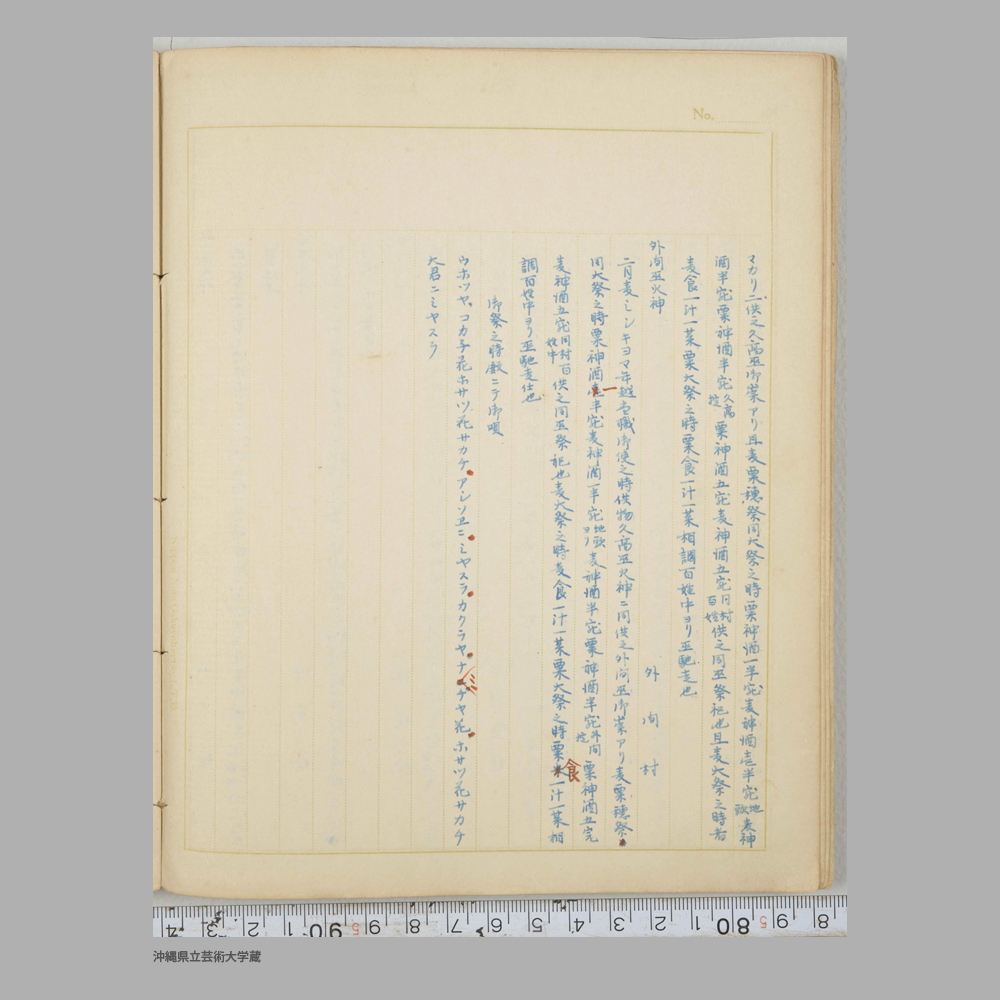 No.
マカリニ供之久高巫御崇アリ且麦粟穂祭同大祭之時粟神酒一半宛麦神酒壱半宛地頭麦神
酒半宛粟神酒半宛久高掟粟神酒五宛麦神酒五宛同村百姓供之同巫祭祀也且麦大祭之時者
麦食一汁一菜粟大祭之時粟食一汁一菜相調百姓中ヨリ巫馳走也
外間村
外間巫火神
二月麦ミシキヨマ年越当職御使之時供物久高巫火神ニ同供之外間巫御崇アリ麦粟穂祭
同大祭之時粟神酒一半宛麦神酒一半宛地頭ヨリ麦神酒半宛粟神酒半宛外間掟粟神酒五宛
麦神酒五宛同村百姓中供之同巫祭祀也麦大祭之時麦食一汁一菜粟大祭之時粟食一汁一菜相
調百姓中ヨリ巫馳走仕也
御祭之時敷ニテ御唄
ウホツヤ、コカネ花ホサツ花サカチ アシソヱニ ミヤスラ カクラヤ ナミチヤ花 ホサツ花サカチ
大君ニミヤスラ
8 9 5 80 1 2 3 4 5 6 7 8 9 5 90 1 2 3 4
沖縄県立芸術大学蔵